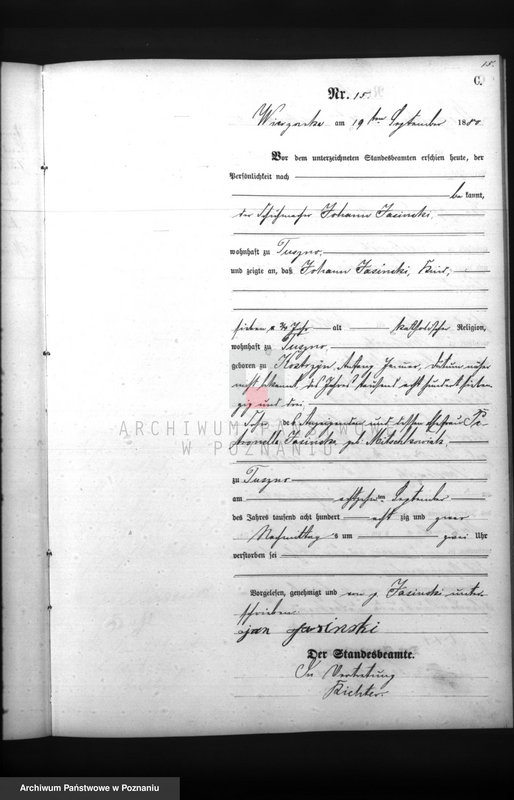 15.
C.
Nr. 15.
am 19ten September 1880
Vor dem unterzeichneten Standesbeamten erschien heute, der
Persönlichkeit nach
be kannt,
der Schuhmacher Johann Jasinski,
wohnhaft zu Tuszno,
und zeigte an, daß Johann Jasinski, Kind,
sieben ¾ Jahr alt katholischer Religion,
wohnhaft zu Tuszno,
geboren zu Kostrzyn, Anfang Januar, Datum näher
nicht bekannt des Jahres tausend acht hundert sieben-
zig und drei,
Sohn des Anzeigenden und dessen Ehefrau Pe-
tronella Jasinska geb.
ARCHIWUM PAŃSTWOWE
W POZNANIU
zu Tuszno
am achtzehnten September
des Jahres tausend acht hundert acht zig und
Nachmittag s um zwei Uhr
verstorben sei
Vorgelesen, genehmigt und von p. Jasinski unter-
schrieben.
jan Jasinski
Der Standesbeamte.
In Vertretung
Richter
Archiwum Państwowe w Poznaniu